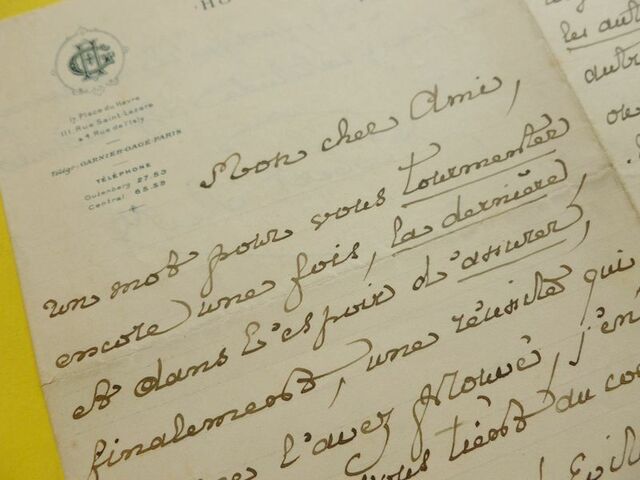 HO
GHC
17 Place du Havre
111, Rue Saint-Lazare
& 4 Rue de l'Isly
Télégr: GARNIER-GAGE-PARIS
TÉLÉPHONE
Gutenberg 27-50
Central 65-59
Mon cher Ami,
un mot pour vous tourmenter
encore une fois, la dernière,
et dans l'espoir d'assurer,
finalement, une réussite qui
l'avez prouvé, j'en
vous tient au
les aut
autr